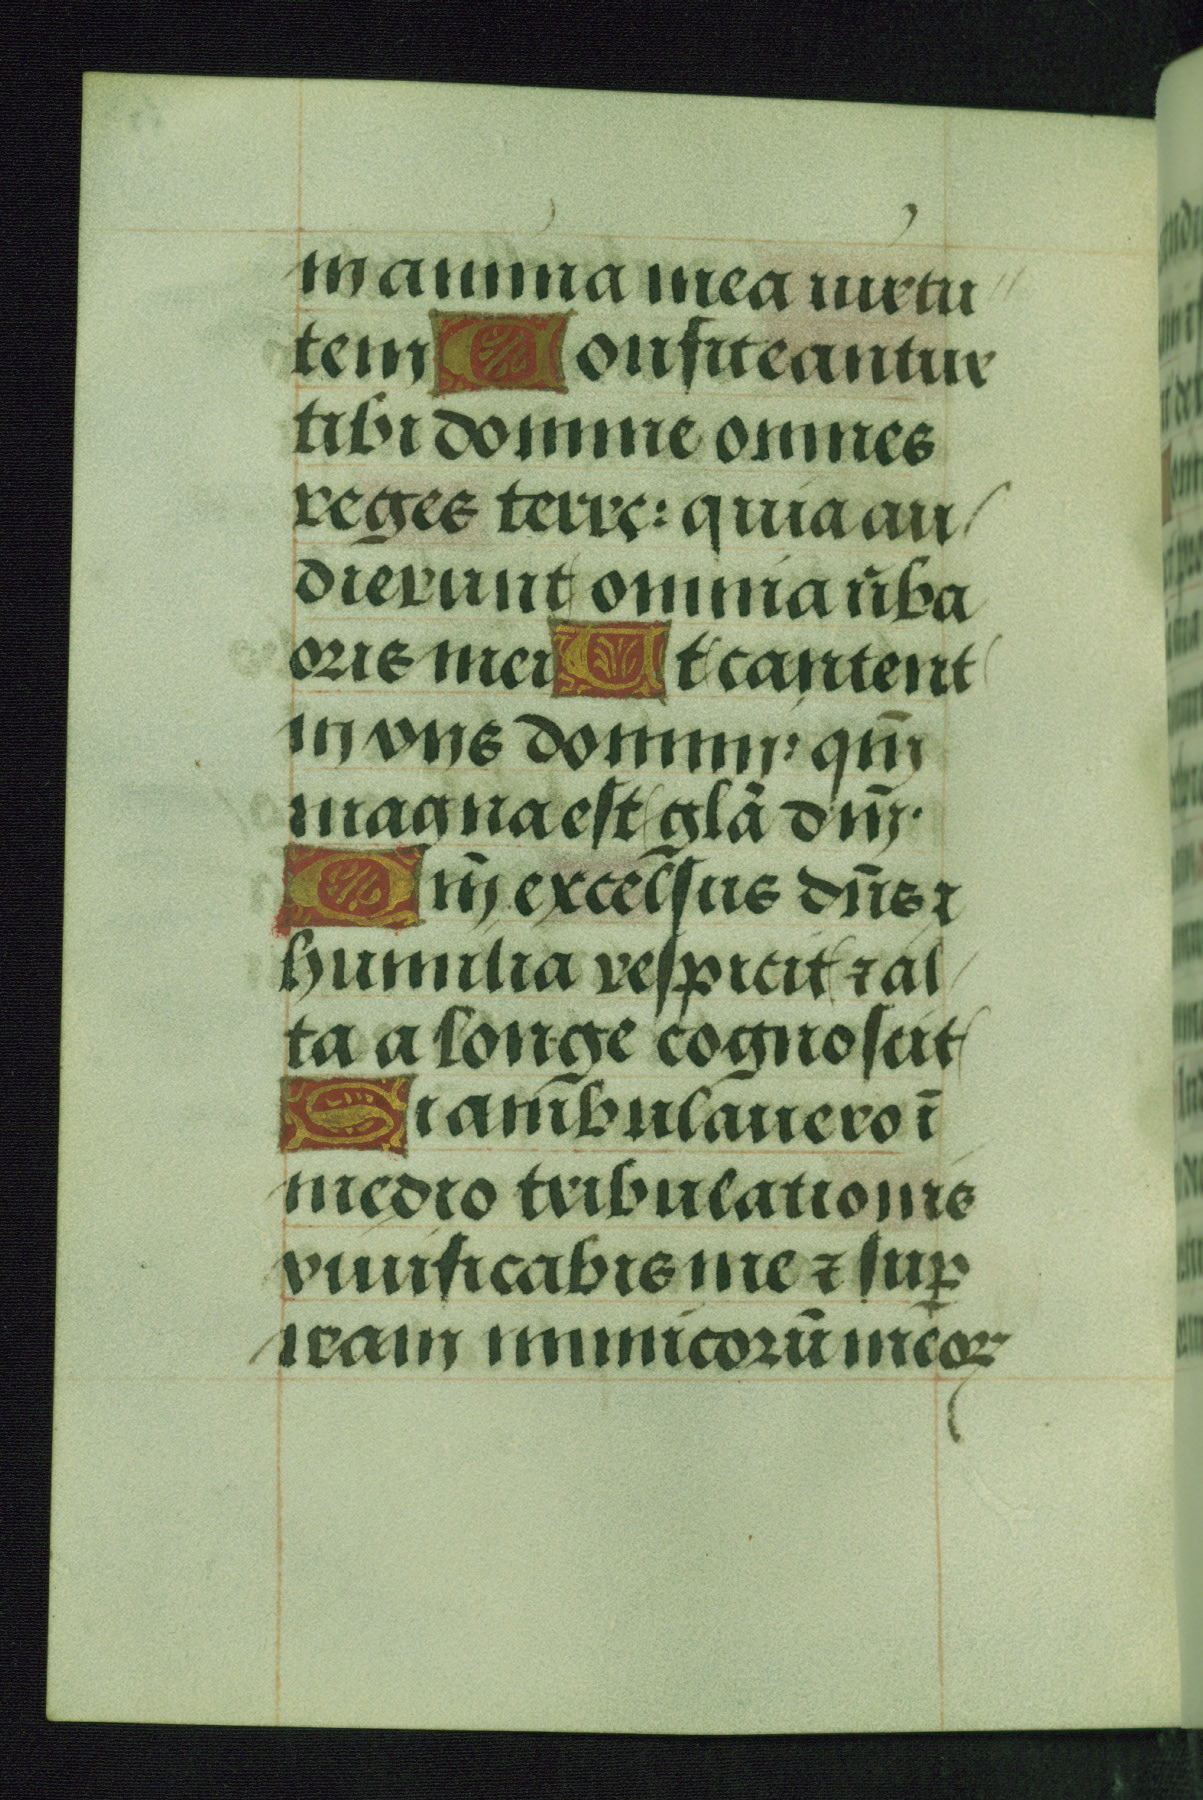 in anima mea uirtu
tem Confiteantur
tibi domine omnes
reges terrę: quia au
dierunt omnia ũba
oris mei Et cantent
in viis domini: qm̃
magna est glã dñi.
Qm̃ excelsus dñs ⁊
humilia respicit ⁊ al
ta a longe cognoscit
Si ambulauero ĩ
medio tribulationis
viuificabis me ⁊ suꝑ
iram inimicorũ meoꝝ